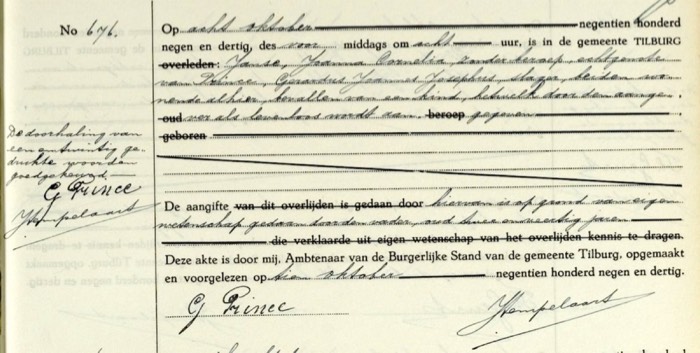 No 676.
Op acht oktober negentien honderd
negen en dertig, des voor middags om acht uur, is in de gemeente TILBURG
overleden: Janse, Joanna Cornelia, zonder beroep, echtgenote
van Prince, Gerardus Joannes Josephus, slager, beiden wo-
nende alhier, bevallen van een kind, hetwelk door den aange-
oud ver als levenloos wordt aan- beroep gegeven
geboren
De doorhaling van
een en twintig ge-
drukte woorden
goedgekeurd.
G Prince
JHempelaart
De aangifte van dit overlijden is gedaan door hiervan is op grond van eigen
wetenschap gedaan door den vader, oud twee en veertig jaren
die verklaarde uit eigen wetenschap van het overlijden kennis te dragen.
Deze akte is door mij, Ambtenaar van de Burgerlijke Stand van de gemeente Tilburg, opgemaakt
en voorgelezen op tien oktober negentien honderd negen en dertig.
G Prince
JHempelaart